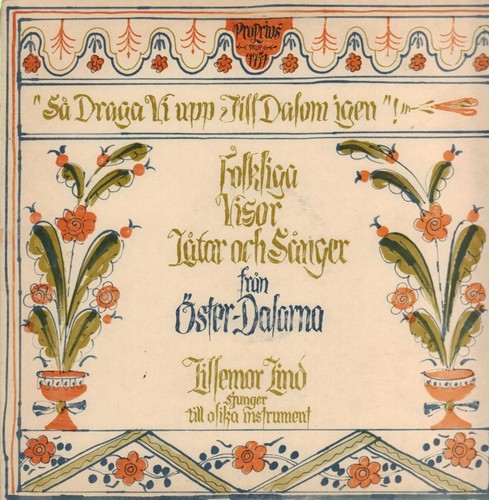 Proprius
PROP
7757
"Så Draga Vi upp Till Dalom igen"!
Folkliga
Visor
Låtar och Sånger
från
Öster-Dalarna
Lillemor Lind
sjunger
till olika instrument